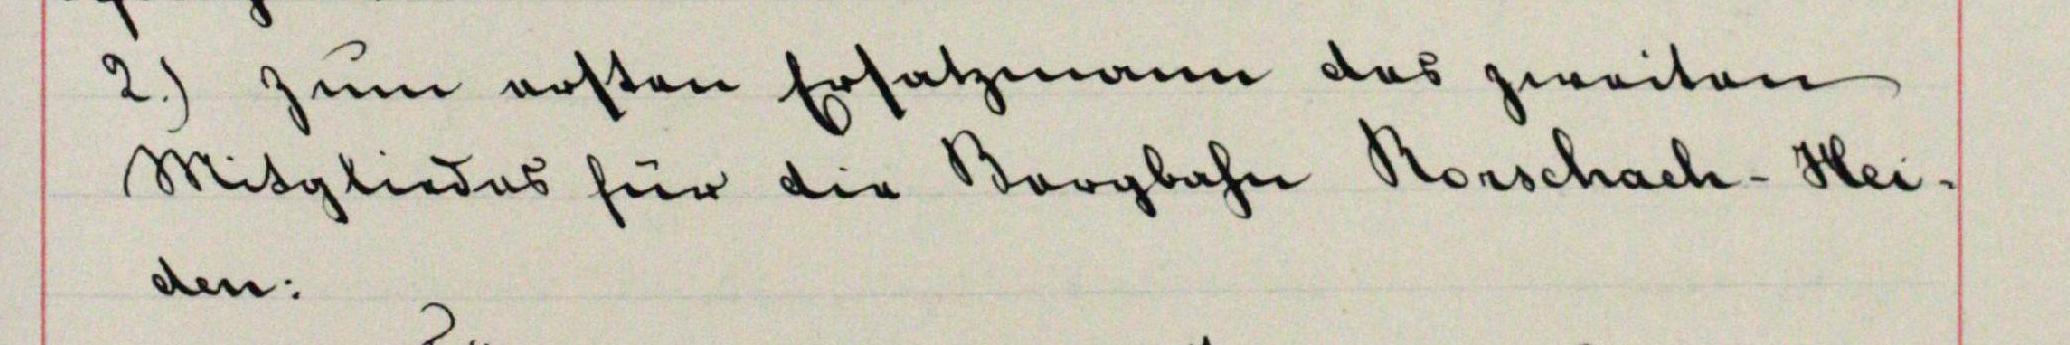 2.) Zum ersten Ersatzmann des zweiten
Mitgliedes für die Bergbahn Rorschach - Hei-
den: